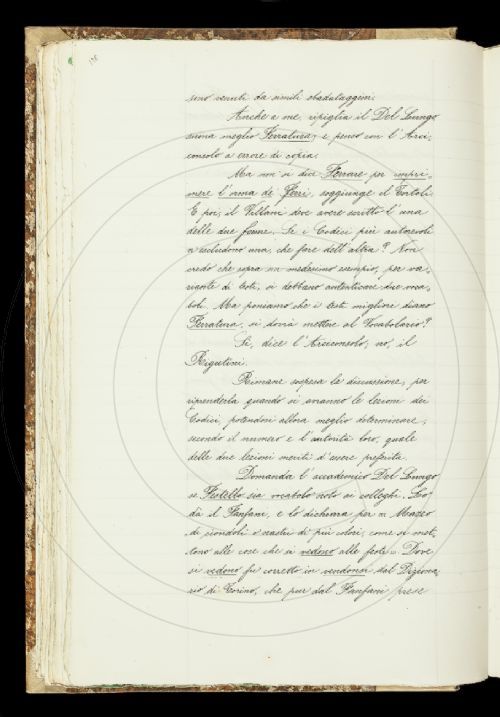 sono venuti da simili sbadataggini.
Anche a me, ripiglia il Del Lungo
suona meglio Ferratura; e penso con l'Arci,
consolo a errore di copia.
Ma non si dice Ferrare per impri=
mere l'arma de' Ferri, soggiunge il Tortoli.
E poi, il Villani deve avere scritto l'una
delle due forme. Se i Codici più autorevoli
n'escludono una, che fare dell'altra? Non
credo che sopra un medesimo esempio, per va,
rianti di testi, si debbano autenticare due voca,
boli. Ma poniamo che i testi migliori diano
Ferratura, si dovrà mettere al Vocabolario?
Sì, dice l'Arciconsolo; no, il
Rigutini.
Rimane sospesa la discussione, per
riprenderla quando si avranno le lezioni dei
Codici, potendosi allora meglio determinare,
secondo il numero e l'autorità loro, quale
delle due lezioni meriti d'essere preferita.
Domanda l'accademico Del Lungo
se Fiotello sia vocabolo noto ai colleghi. Lo
dà il Fanfani, e lo dichiara per = Mazzo
di ciondoli o nastri di più colori, come si met,
tono alle cose che si vedono alle feste =. Dove
si vedono fu corretto in vendono dal Diziona,
rio di Torino, che pur dal Fanfani prese